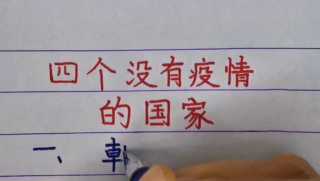 四个没有疫情
的国家
一、